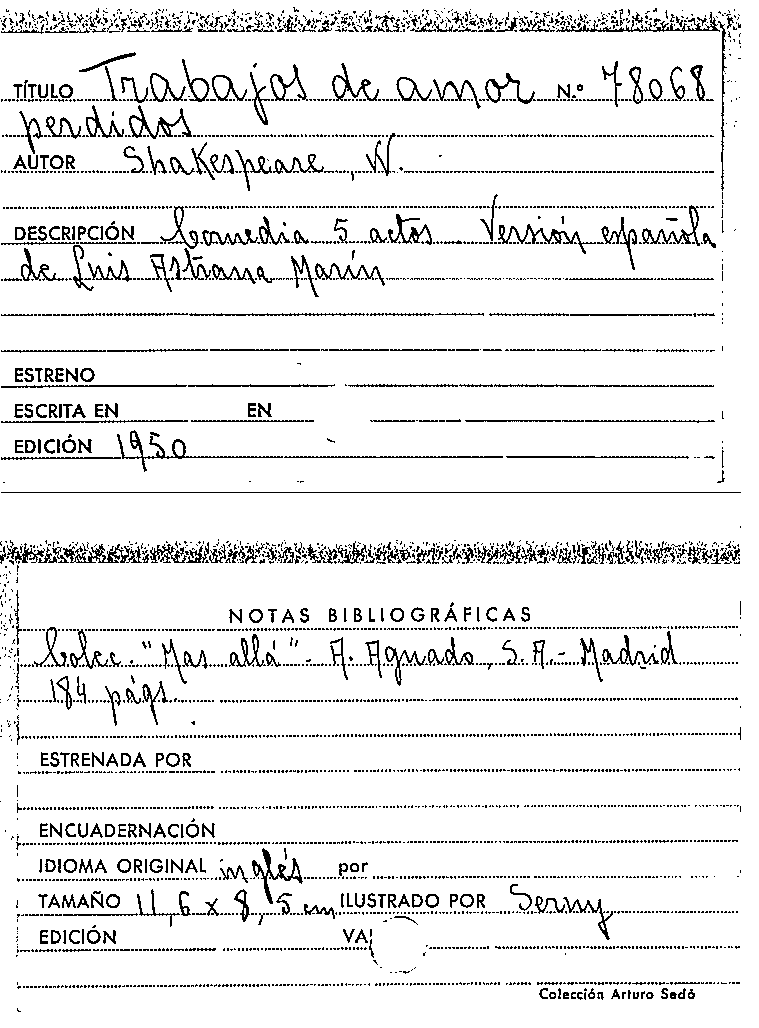 TÍTULO Trabajos de amor N.º 78068
perdidos
AUTOR Shakespeare, W.
DESCRIPCIÓN Comedia 5 actos. Versión española
de Luis Astrana Marín
ESTRENO
ESCRITA EN EN
EDICIÓN 1950
NOTAS BIBLIOGRÁFICAS
Colec. "Mas allá" - A. Aguado, S. A. - Madrid
184 págs.
ESTRENADA POR
ENCUADERNACIÓN
IDIOMA ORIGINAL inglés por
TAMAÑO 11,6 x 8,5 cm ILUSTRADO POR Serny
EDICIÓN VA
Colección Arturo Sedó